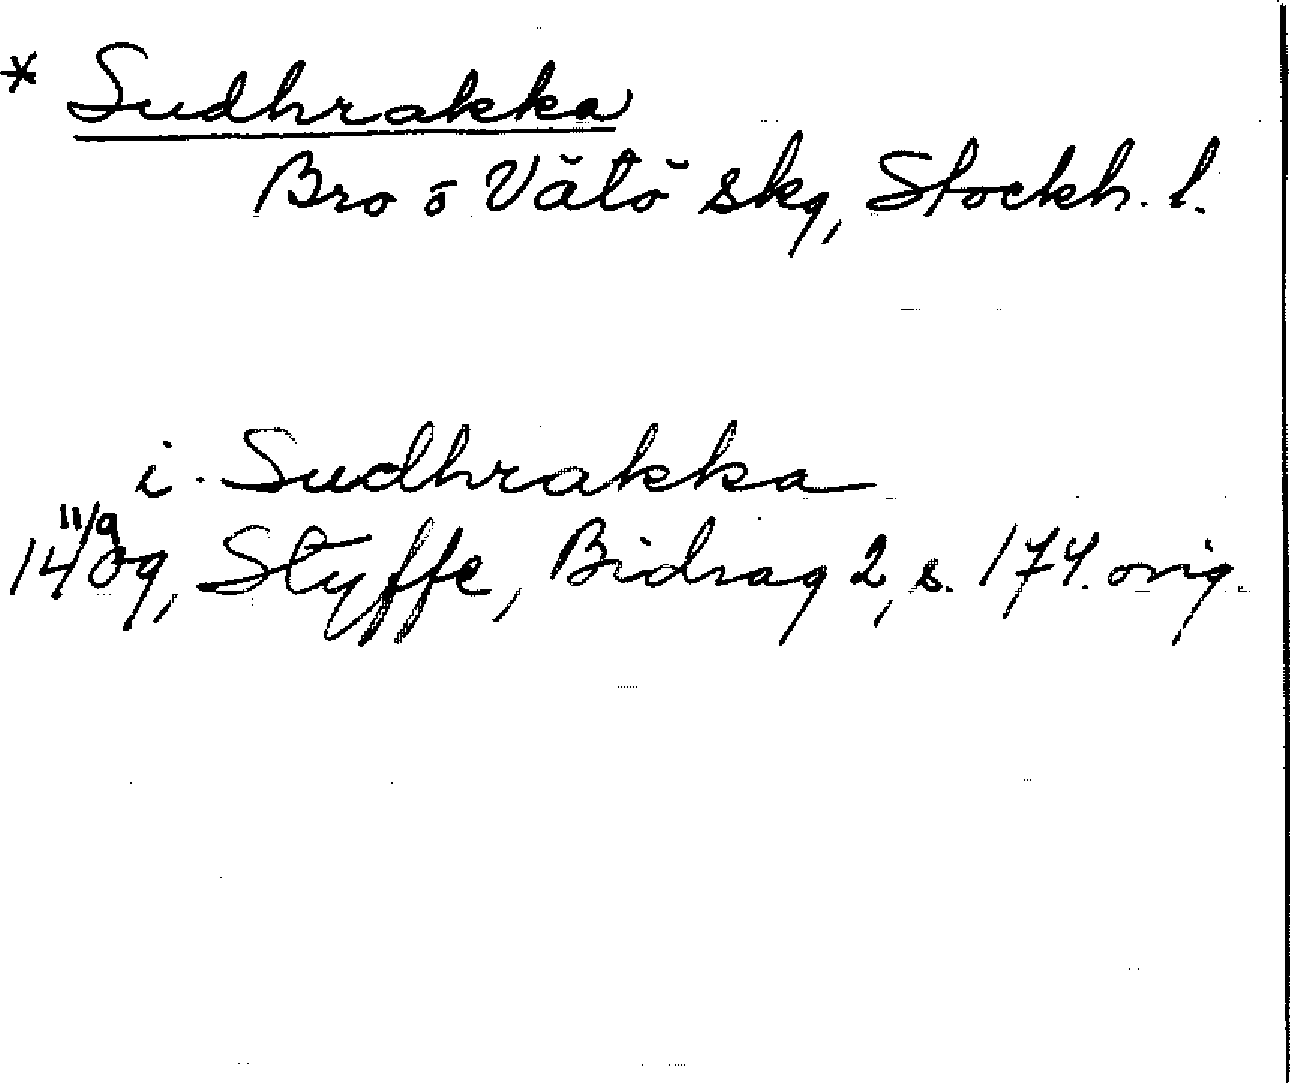 * Sudhrakka
Bro o Vätö skg, Stockh. l.
i. Sudhrakka
11/9
1409, Styffe, Bidrag 2, s. 174. orig.